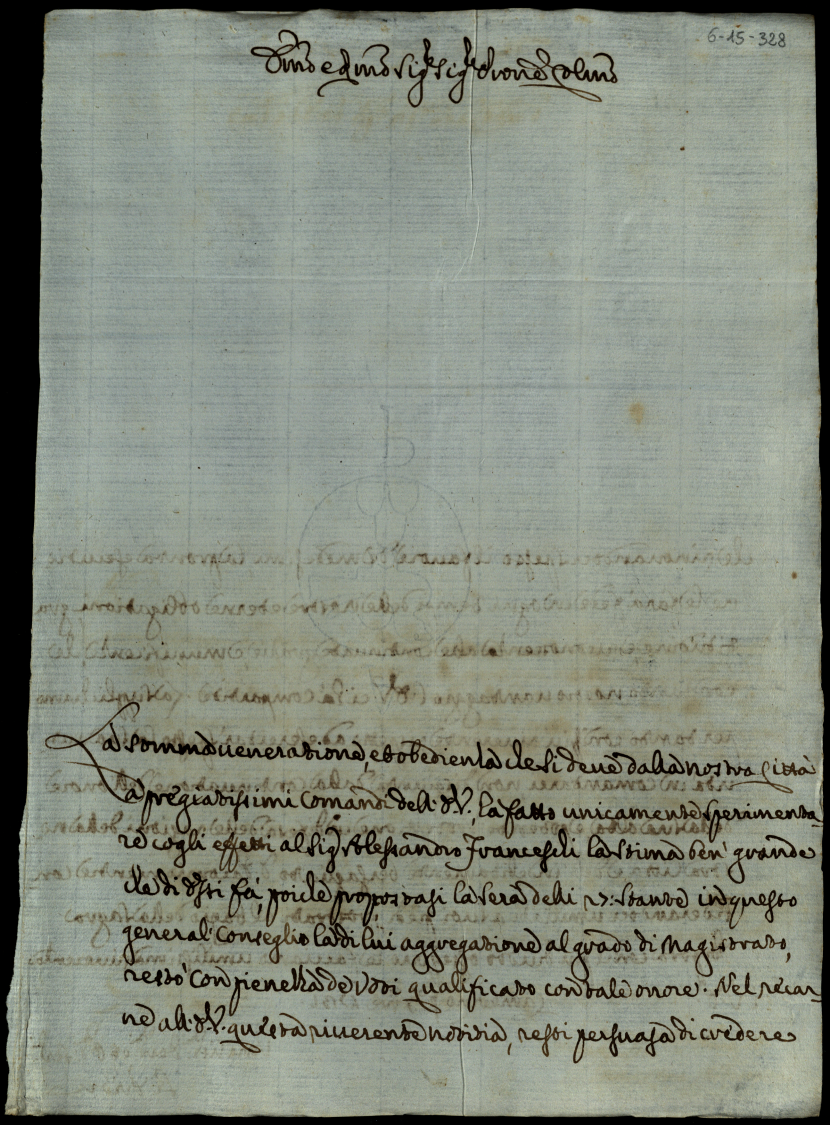 6-15-328
Sig.r Sig.r Prone Colmo
La somma veneratione, et obedienza che si deve dalla nostra Città
a pregiatissimi comandi dell' V., ha fatto unicamente sperimenta-
re cogli effetti al Sig.r Alessandro Franceschi la stima ben grande
che di essi fà, poiche propostasi la sera delli 17: stante in questo
general Conseglio la di lui aggregatione al grado di Magistrato,
restò con pienezza de Voti qualificato con tale onore. Nel recar-
ne all' V. questa riverente notitia, resti persuasa di credere